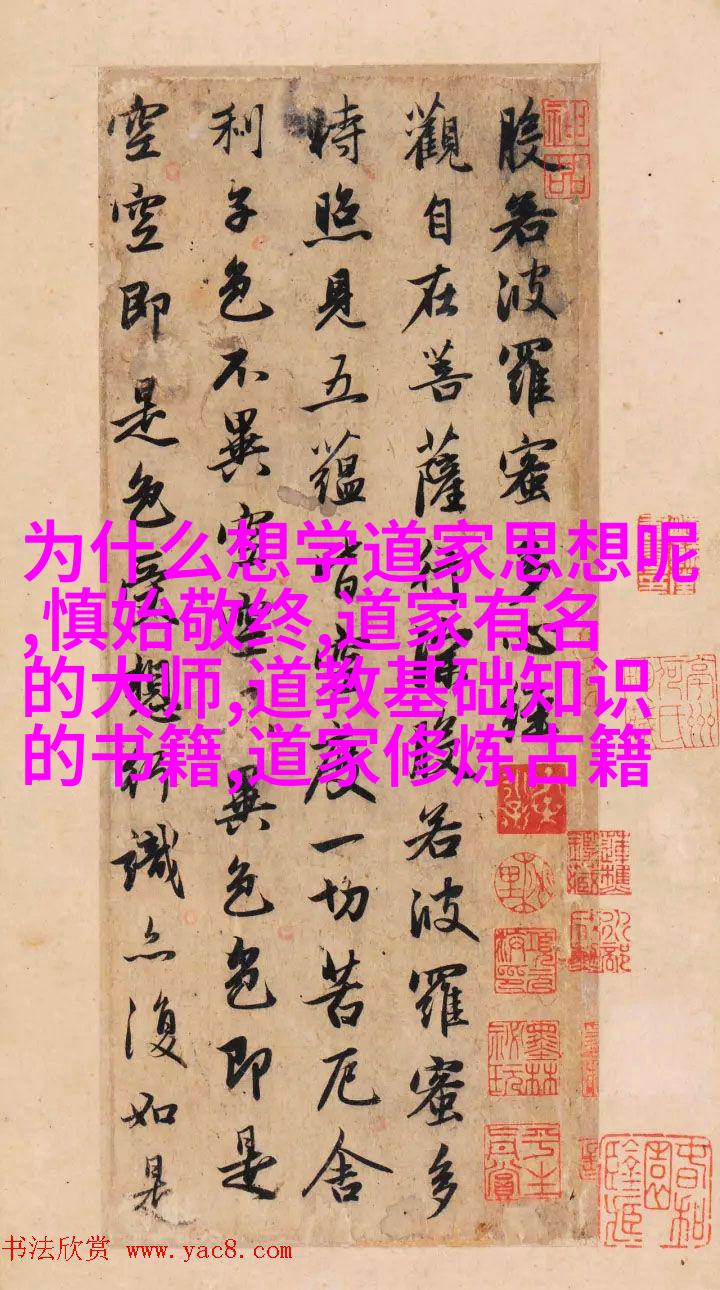 般若波羅蜜多心經
觀自在菩薩行深般若波羅蜜多
時照見五蘊皆空度一切苦厄舍
利子色不異空空不異色色即是
空空即是色受想行識亦復如是
为什么想学道家思想呢
,慎始敬终,道家有名
的大师,道教基础知识
的书籍,道家修炼古籍
神品
墨林秘玩
书法欣赏 www.yac8.com